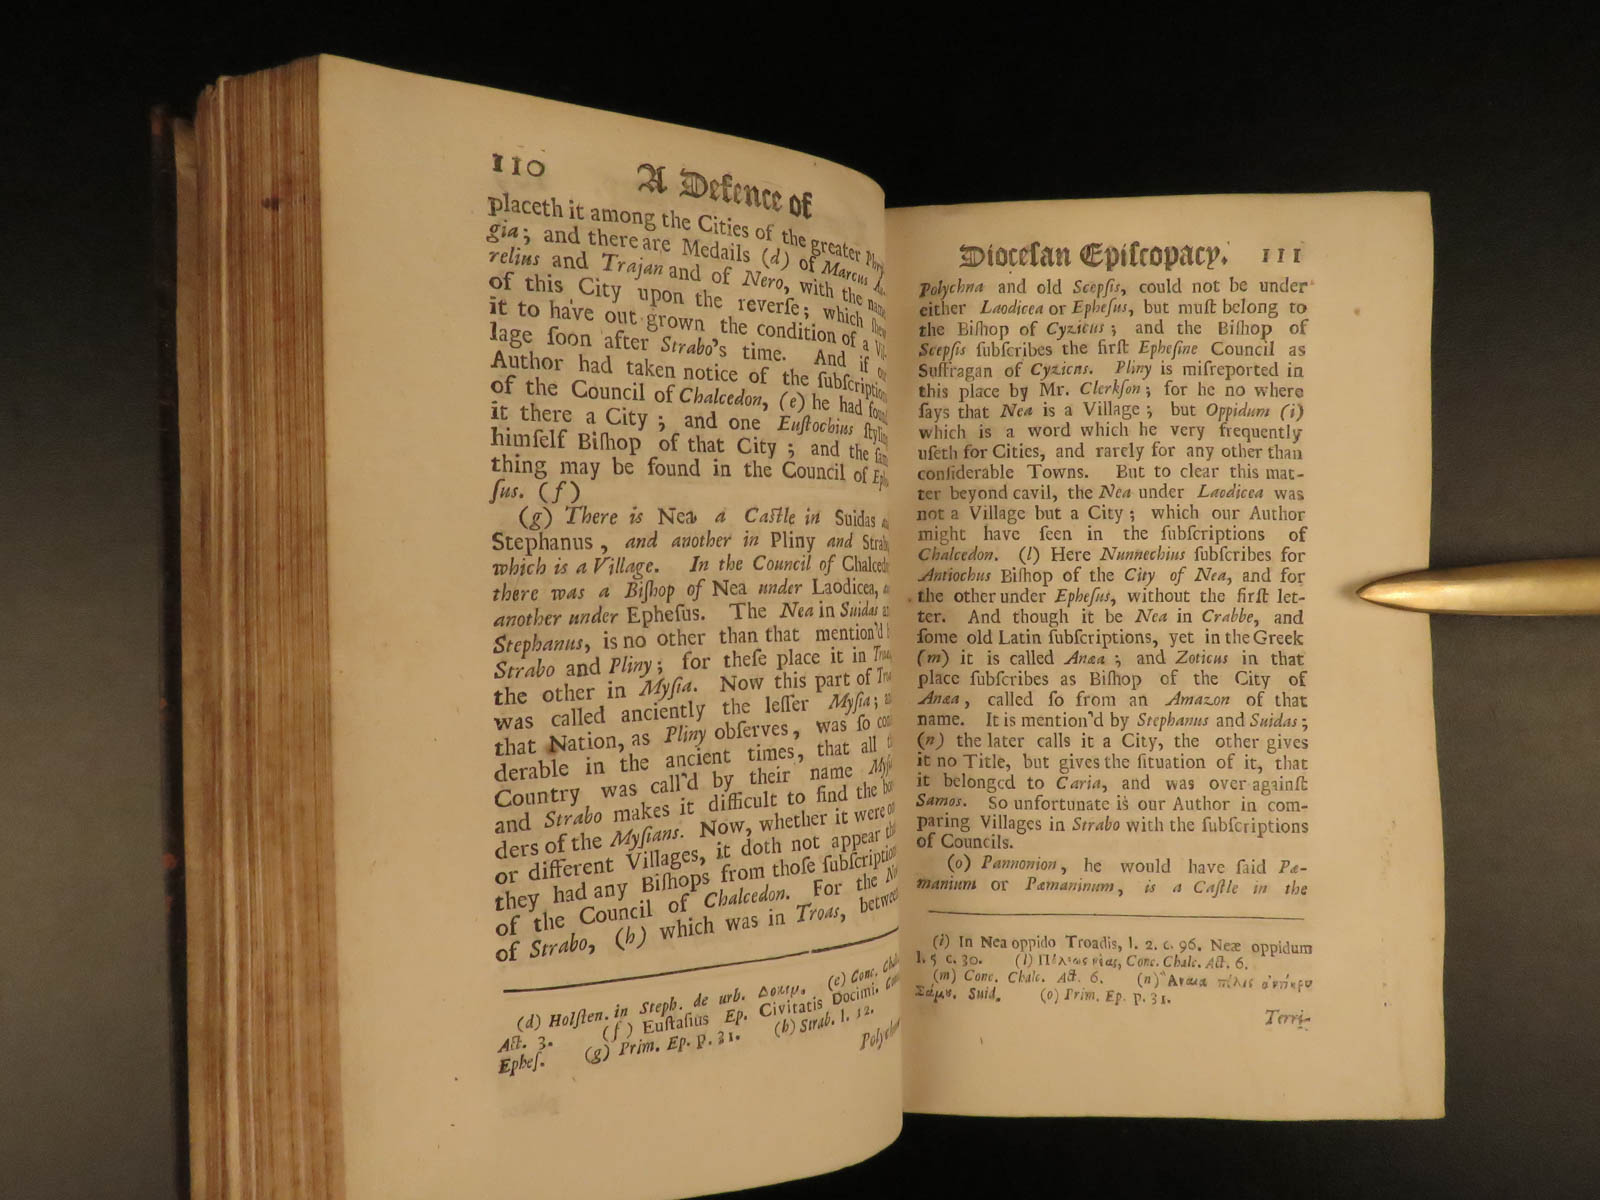 110
A Defence of
placeth it among the Cities of the greater Phry-
gia; and there are Medails (d) of Marcus Au-
relius and Trajan and of Nero, with the name
of this City upon the reverſe; which ſhew
it to have out grown the condition of a Vil-
lage ſoon after Strabo's time. And if our
Author had taken notice of the ſubſcription
of the Council of Chalcedon, (e) he had found
it there a City; and one Euſtochius ſtyling
himſelf Biſhop of that City; and the ſame
thing may be found in the Council of Ephe-
ſus. (f)
(g) There is Nea a Caſtle in Suidas and
Stephanus, and another in Pliny and Strabo,
which is a Village. In the Council of Chalcedon
there was a Biſhop of Nea under Laodicea,
another under Epheſus. The Nea in Suidas and
Stephanus, is no other than that mention'd by
Strabo and Pliny; for theſe place it in Troas,
the other in Myſia. Now this part of Troas
was called anciently the leſſer Myſia; and
that Nation, as Pliny obſerves, was ſo conſi-
derable in the ancient times, that all the
Country was call'd by their name Myſia
and Strabo makes it difficult to find the bor-
ders of the Myſians. Now, whether it were one
or different Villages, it doth not appear that
they had any Biſhops from thoſe ſubſcriptions
of the Council of Chalcedon. For the Nea
of Strabo, (h) which was in Troas, between
(d) Holſten. in Steph. de urb. Δοκιμ. (e) Conc. Chal.
Act. 3. (f) Euſtaſius Ep. Civitatis Docimi. Conc.
Epheſ. (g) Prim. Ep. p. 31. (h) Strab. l. 12.
Polychna
Dioceſan Epiſcopacy. 111
Polychna and old Scepſis, could not be under
either Laodicea or Epheſus, but muſt belong to
the Biſhop of Cyzicus; and the Biſhop of
Scepſis ſubſcribes the firſt Epheſine Council as
Suffragan of Cyzicus. Pliny is miſreported in
this place by Mr. Clerkſon; for he no where
ſays that Nea is a Village; but Oppidum (i)
which is a word which he very frequently
uſeth for Cities, and rarely for any other than
conſiderable Towns. But to clear this mat-
ter beyond cavil, the Nea under Laodicea was
not a Village but a City; which our Author
might have ſeen in the ſubſcriptions of
Chalcedon. (l) Here Nunnechius ſubſcribes for
Antiochus Biſhop of the City of Nea, and for
the other under Epheſus, without the firſt let-
ter. And though it be Nea in Crabbe, and
ſome old Latin ſubſcriptions, yet in the Greek
(m) it is called Anæa; and Zoticus in that
place ſubſcribes as Biſhop of the City of
Anæa, called ſo from an Amazon of that
name. It is mention'd by Stephanus and Suidas;
(n) the later calls it a City, the other gives
it no Title, but gives the ſituation of it, that
it belonged to Caria, and was over againſt
Samos. So unfortunate is our Author in com-
paring Villages in Strabo with the ſubſcriptions
of Councils.
(o) Pannonion, he would have ſaid Pæ-
manium or Pæmaninum, is a Caſtle in the
(i) In Nea oppido Troadis, l. 2. c. 96. Neæ oppidum
l. 5 c. 30. (l) Conc. Chalc. Act. 6.
(m) Conc. Chalc. Act. 6. (n) Αναια πόλις ἀντίκρυ
Σάμου. Suid. (o) Prim. Ep. p. 31.
Terri-